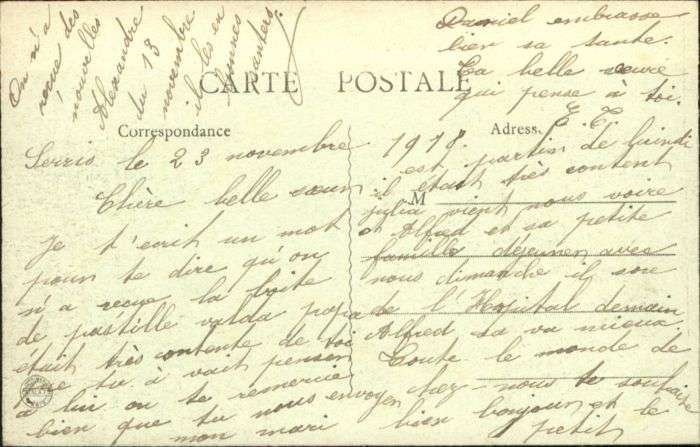 CARTE POSTALE
Correspondance
Adresse
Serris le 23 novembre 1918.
Chère belle sœur
Je t'ecrit un mot
pour te dire qu'on
n'a recue la boite
de pastille valda papa
était très contente de toi
que tu à vait penser
à lui on te remercie
bien que tu nous envoyen
mon mari
est partin de lundi
il était très content
julia vient nous voire
et Alfred et sa petite
famille déjeuner avec
nous dimanche il sore
de l'Hopital demain
Alfred sa va mieux.
Toute le monde de
chez-nous te souhaite
bien bonjour et le
petit
Daniel embrasse
bien sa tante.
Ta belle sœure
qui pense à toi.
E. C.
On n'a
reçue des
nouvelles
Alexandre
du 13
novembre
il les en
bonnes
santers
M